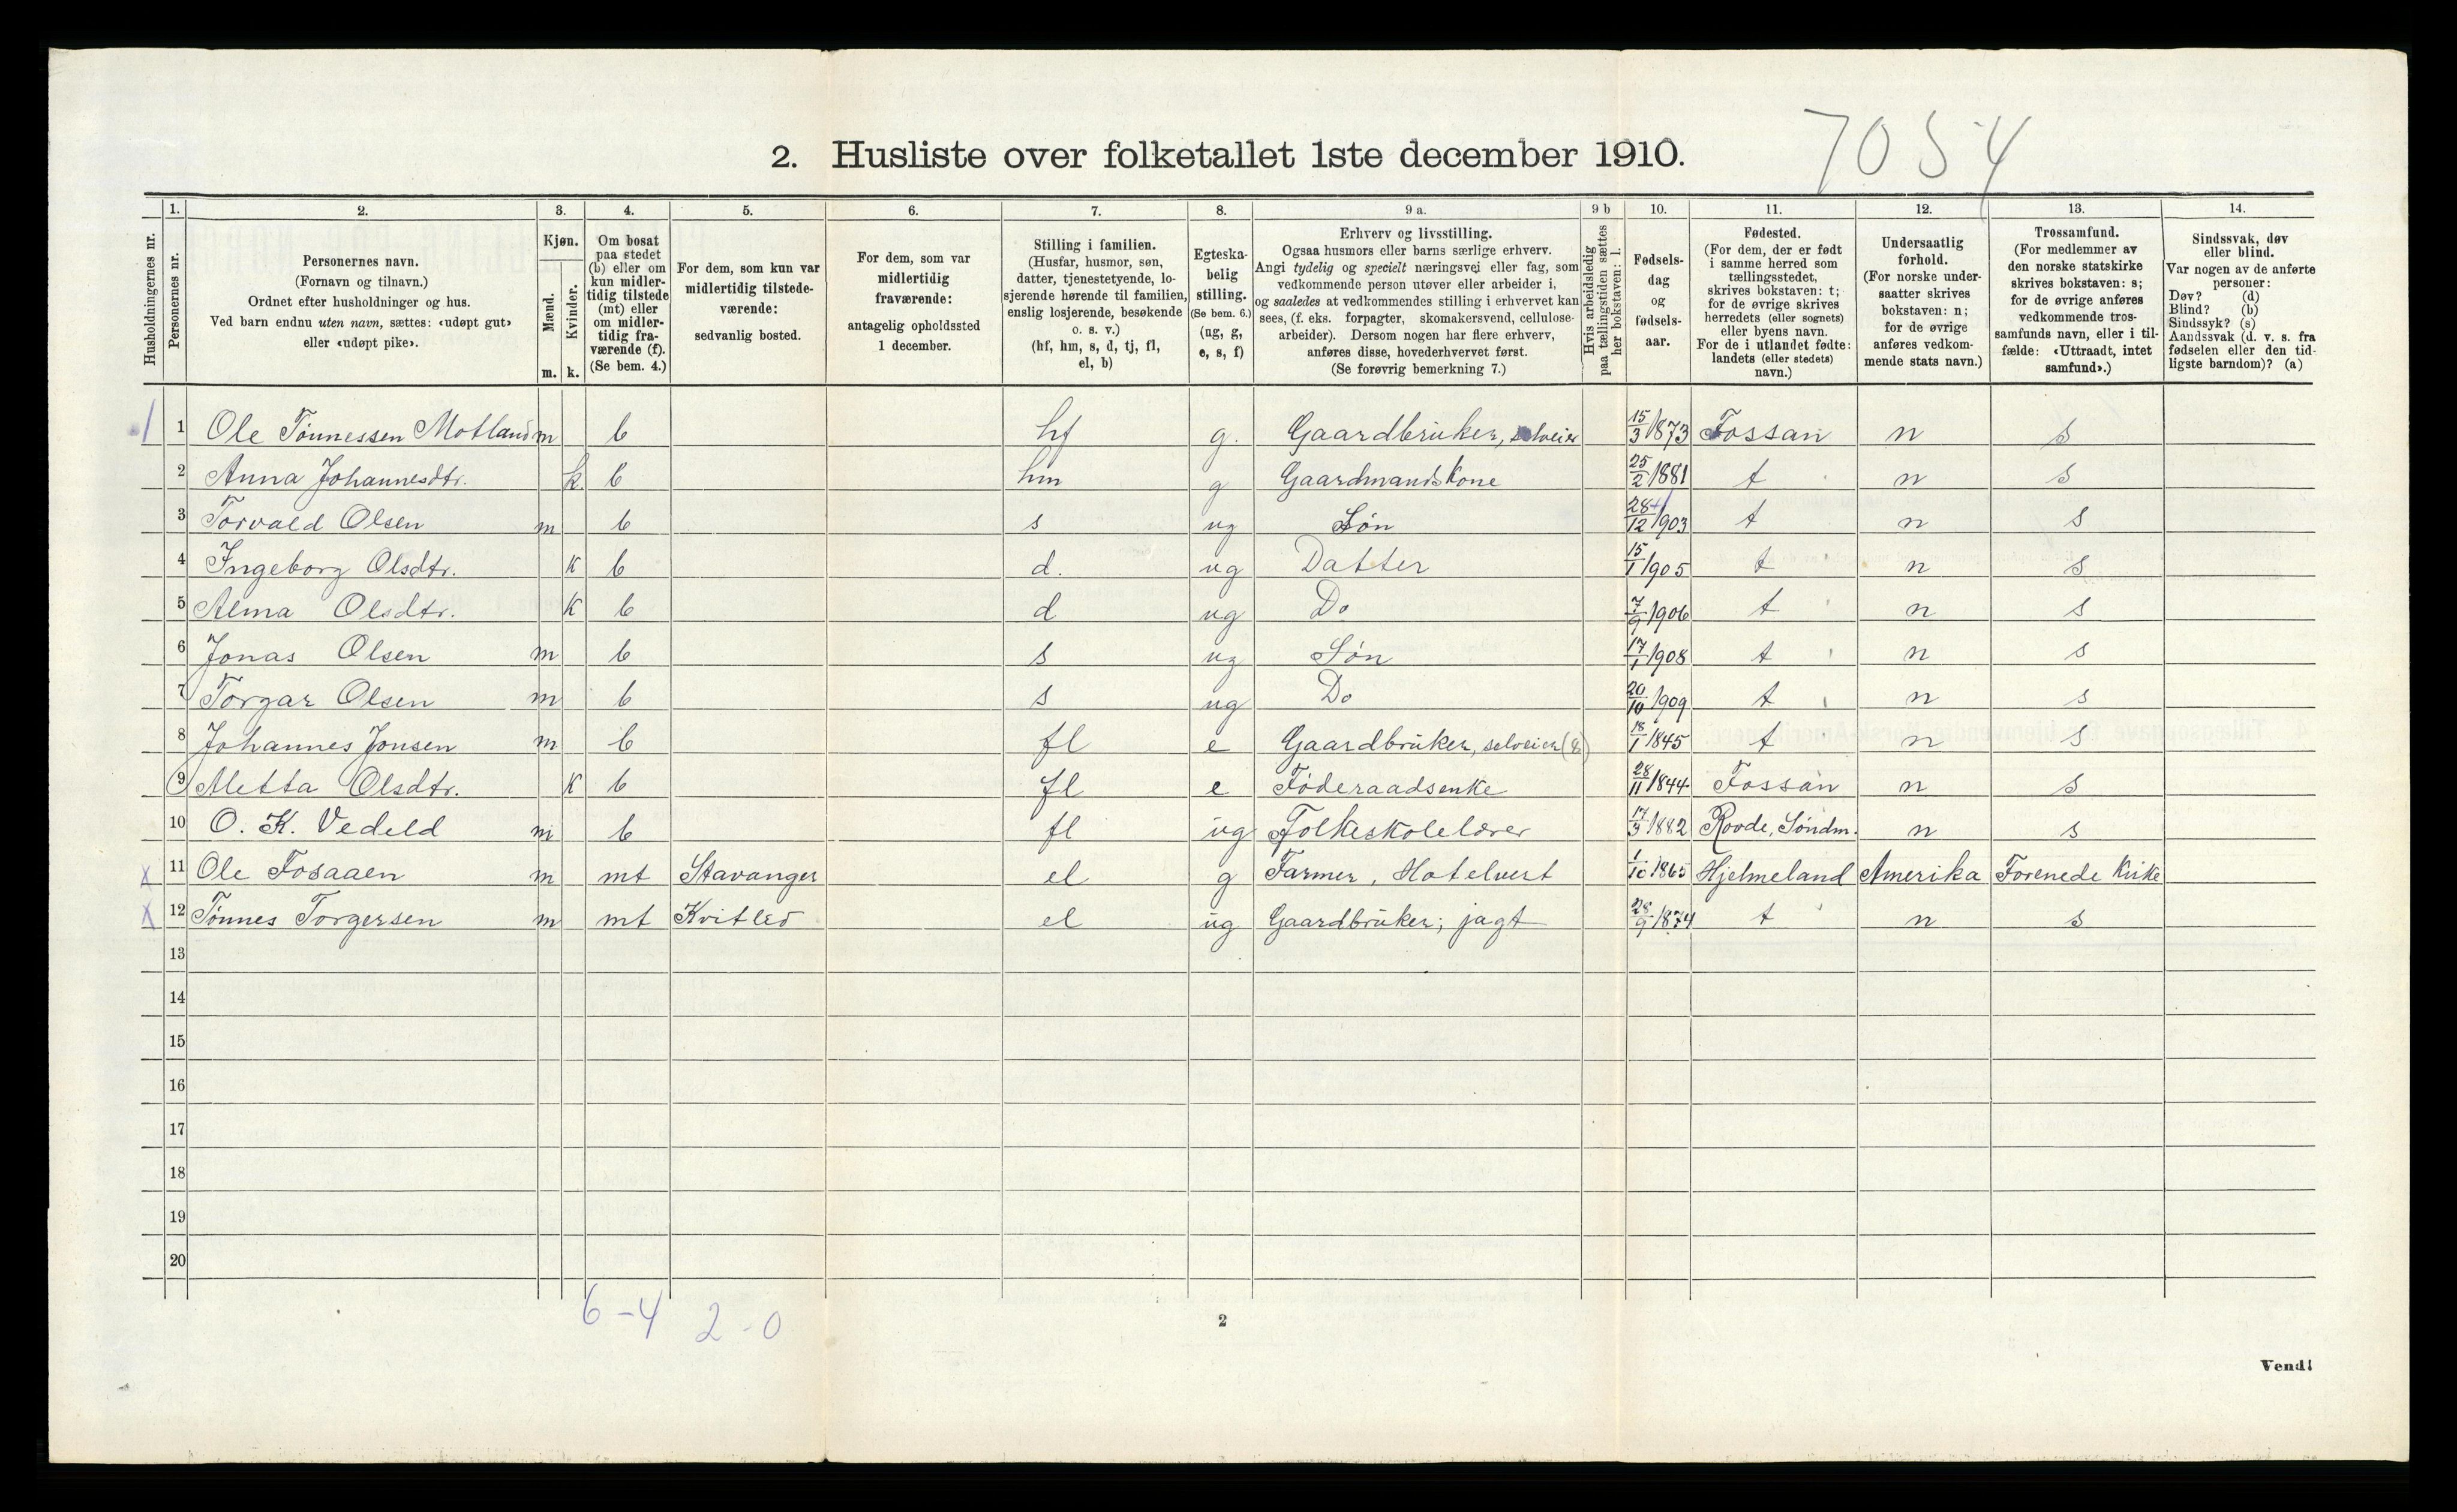 7054
2. Husliste over folketallet 1ste december 1910.
Husholdningernes nr.
1.
Personernes nr.
2.
Personernes navn.
(Fornavn og tilnavn.)
Ordnet efter husholdninger og hus.
Ved barn endnu uten navn, sættes: «udøpt gut»
eller «udøpt pike».
3.
Kjøn.
Mænd.
Kvinder.
m. k.
4.
Om bosat
paa stedet
(b) eller om
kun midler-
tidig tilstede
(mt) eller
om midler-
tidig fra-
værende (f).
(Se bem. 4.)
5.
For dem, som kun var
midlertidig tilstede-
værende:
sedvanlig bosted.
6.
For dem, som var
midlertidig
fraværende:
antagelig opholdssted
1 december.
7.
Stilling i familien.
(Husfar, husmor, søn,
datter, tjenestetyende, lo-
sjerende hørende til familien,
enslig losjerende, besøkende
o. s. v.)
(hf, hm, s, d, tj, fl,
el, b)
8.
Egteska-
belig
stilling.
(Se bem. 6.)
(ug, g,
e, s, f)
9 a.
Erhverv og livsstilling.
Ogsaa husmors eller barns særlige erhverv.
Angi tydelig og specielt næringsvei eller fag, som
vedkommende person utøver eller arbeider i,
og saaledes at vedkommendes stilling i erhvervet kan
sees, (f. eks. forpagter, skomakersvend, cellulose-
arbeider). Dersom nogen har flere erhverv,
anføres disse, hovederhvervet først.
(Se forøvrig bemerkning 7.)
9 b
Hvis arbeidsledig
paa tællingstiden sættes
her bokstaven: l.
10.
Fødsels-
dag
og
fødsels-
aar.
11.
Fødested.
(For dem, der er født
i samme herred som
tællingsstedet,
skrives bokstaven: t;
for de øvrige skrives
herredets (eller sognets)
eller byens navn.
For de i utlandet fødte:
landets (eller stedets)
navn.)
12.
Undersaatlig
forhold.
(For norske under-
saatter skrives
bokstaven: n;
for de øvrige
anføres vedkom-
mende stats navn.)
13.
Trossamfund.
(For medlemmer av
den norske statskirke
skrives bokstaven: s;
for de øvrige anføres
vedkommende tros-
samfunds navn, eller i til-
fælde: «Uttraadt, intet
samfund».)
14.
Sindssvak, døv
eller blind.
Var nogen av de anførte
personer:
Døv? (d)
Blind? (b)
Sindssyk? (s)
Aandssvak (d. v. s. fra
fødselen eller den tid-
ligste barndom)? (a)
1 Ole Tønnessen Motland m b hf g. Gaardbruker, selveier 15/3 1873 Fossan n s
2 Anna Johannesdtr. k. b hm g Gaardmandskone 25/2 1881 t n s
3 Torvald Olsen m b s ug Søn 28/12 1903 t n s
4 Ingeborg Olsdtr. k b d. ug Datter 15/1 1905 t n s
5 Alma Olsdtr. k b d ug Do 7/9 1906 t n s
6 Jonas Olsen m b s ug Søn 17/1 1908 t n s
7 Torgar Olsen m b s ug Do 20/10 1909 t n s
8 Johannes Jonsen m b fl e Gaardbruker, selveier 18/1 1845 t n s
9 Metta Olsdtr. k b fl e Føderaadsenke 28/11 1844 Fossan n s
10 O. K. Vedeld m b fl ug Folkeskolelærer 1882 Rovde, Søndm. n s
11 Ole Fosaaen m mt Stavanger el g Farmer, Hotelvert 1/10 1865 Hjelmeland Amerika Forenede Kirke
12 Tønnes Torgersen m mt Kvitlev el ug Gaardbruker; jagt 28/9 1874 t n s
13
14
15
16
17
18
19
20
6 - 4 2 - 0
2
Vend!